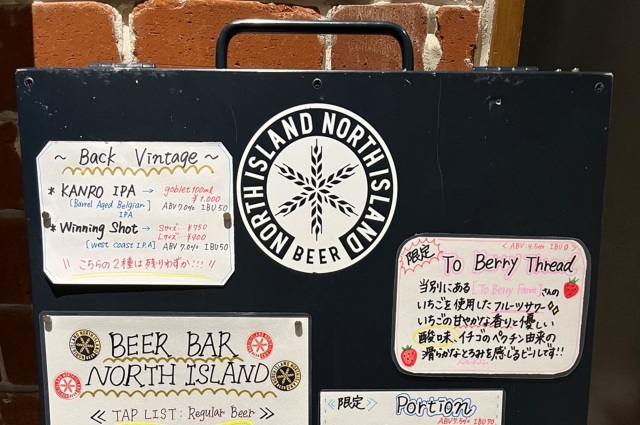 NORTH ISLAND NORTH ISLAND
BEER
~ Back Vintage ~
* KANRO IPA → goblet 100ml ¥1,000
[Barrel Aged Belgian IPA] ABV7.0% IBU50
* Winning Shot → Sサイズ ¥750
Lサイズ ¥900
[west coast IPA] ABV7.0% IBU50
!! こちらの2種は残りわずか!!!
<ABV4.5% IBU0>
限定 To Berry Thread
当別にある [To Berry Farm] さんの
いちごを使用したフルーツサワー
いちごの甘やかな香りと優しい
酸味、イチゴのペクチン由来の
滑らかなとろみを感じるビールです!!
BEER BAR
NORTH ISLAND
≪ TAP LIST: Regular Beer ≫
≪限定≫ Portion
ABV7.5% IBU70